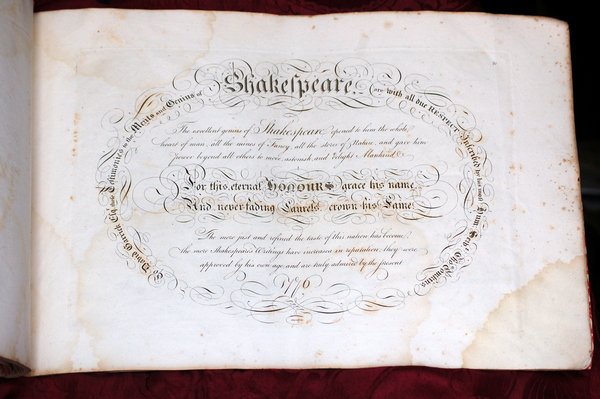 To David Garrick Esq. these Testimonies to the Merits and Genius of
Shakespeare
are with all due RESPECT Inscribed by his most Hum. Serv.
The excellent genius of Shakespeare opened to him the whole
heart of man, all the mines of Fancy, all the stores of Nature, and gave him
power beyond all others to move, astonish, and delight Mankind.
For this, eternal HONOURS grace his name,
And never-fading Laurels crown his Fame.
The more just and refined the taste of this nation has become,
the more Shakespeare's Writings have increas'd in reputation; they were
approved by his own age, and are truly admired by the present
1776